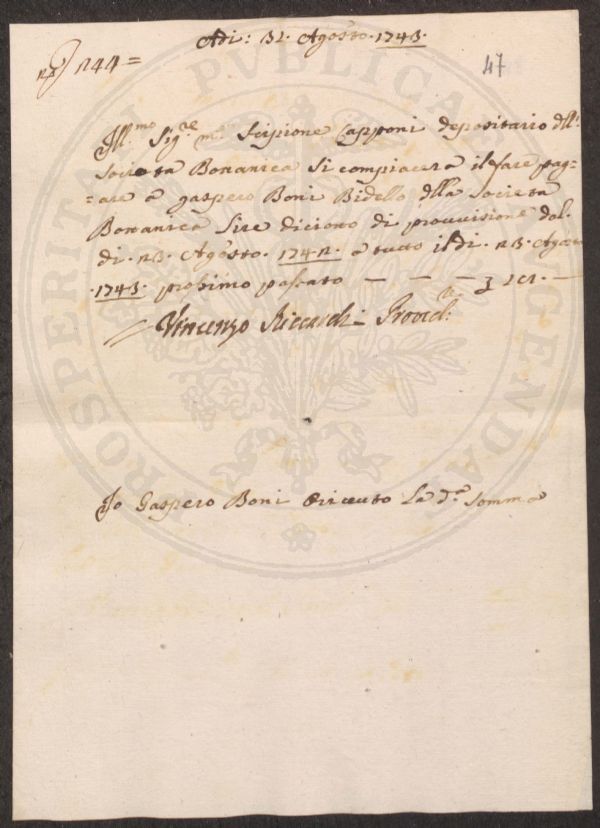 Adi: 31. Agosto. 1743.
47
N.º 244 =
Ill.mo Sig.re mº Scipione Capponi depositario dll.ª
Società Bottanica si compiacerà il fare pag=
=are à Gaspero Boni Bidello dlla Società
Bottanica Lire diciotto di provvisione dal.
di. 23. Agosto. 1742. à tutto il dì. 23. Agosto
.1743. prosimo passato — — —
Vincenzo Riccardi Provvd.:
Io Gaspero Boni ò riceuto La d.ª somma
PROSPERITATI PVBLICAE AVGENDAE